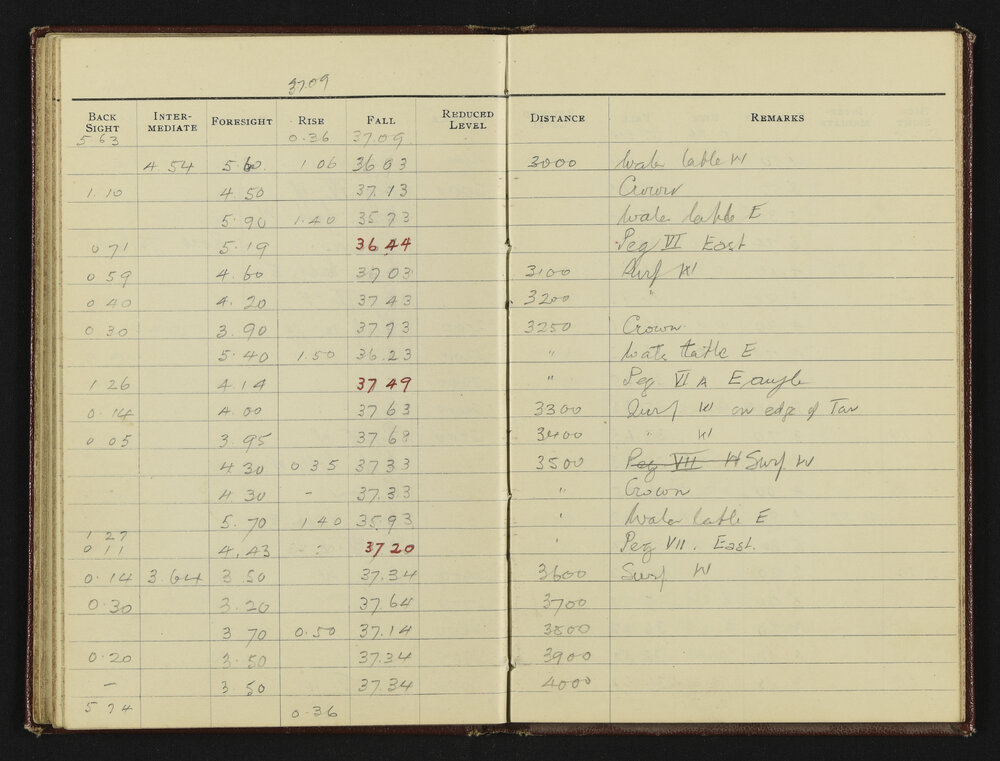 37.09
BACK SIGHT INTER-MEDIATE FORESIGHT RISE FALL REDUCED LEVEL DISTANCE REMARKS
5 63 0.36 37.09
4.54 5 60 1 06 36 03 3000 Water table W
1.10 4.50 37.13 Crown
5.90 1.40 35 73 Water table E
0 71 5.19 36 44 Peg VI East
0 59 4.60 37 03 3100 Surf W
0 40 4.20 37 43 3200 "
0 30 3.90 37 73 3250 Crown
5.40 1.50 36.23 " Water table E
1 26 4.14 37 49 " Peg VI A E angle
0.14 4.00 37 63 3300 Surf W on edge of Tar
0 05 3.95 37 68 3400 " W
4.30 0 35 37 33 3500 Peg VII W Surf W
4.30 - 37.33 " Crown
5.70 1 40 35.93 " Water table E
1 27
0 11 4.43 37 20 " Peg VII. East.
0.14 3.64 3.50 37.34 3600 Surf W
0.30 3.20 37.64 3700
3 70 0.50 37.14 3800
0.20 3.50 37.34 3900
- 3 50 37.34 4000
5 74 0.36